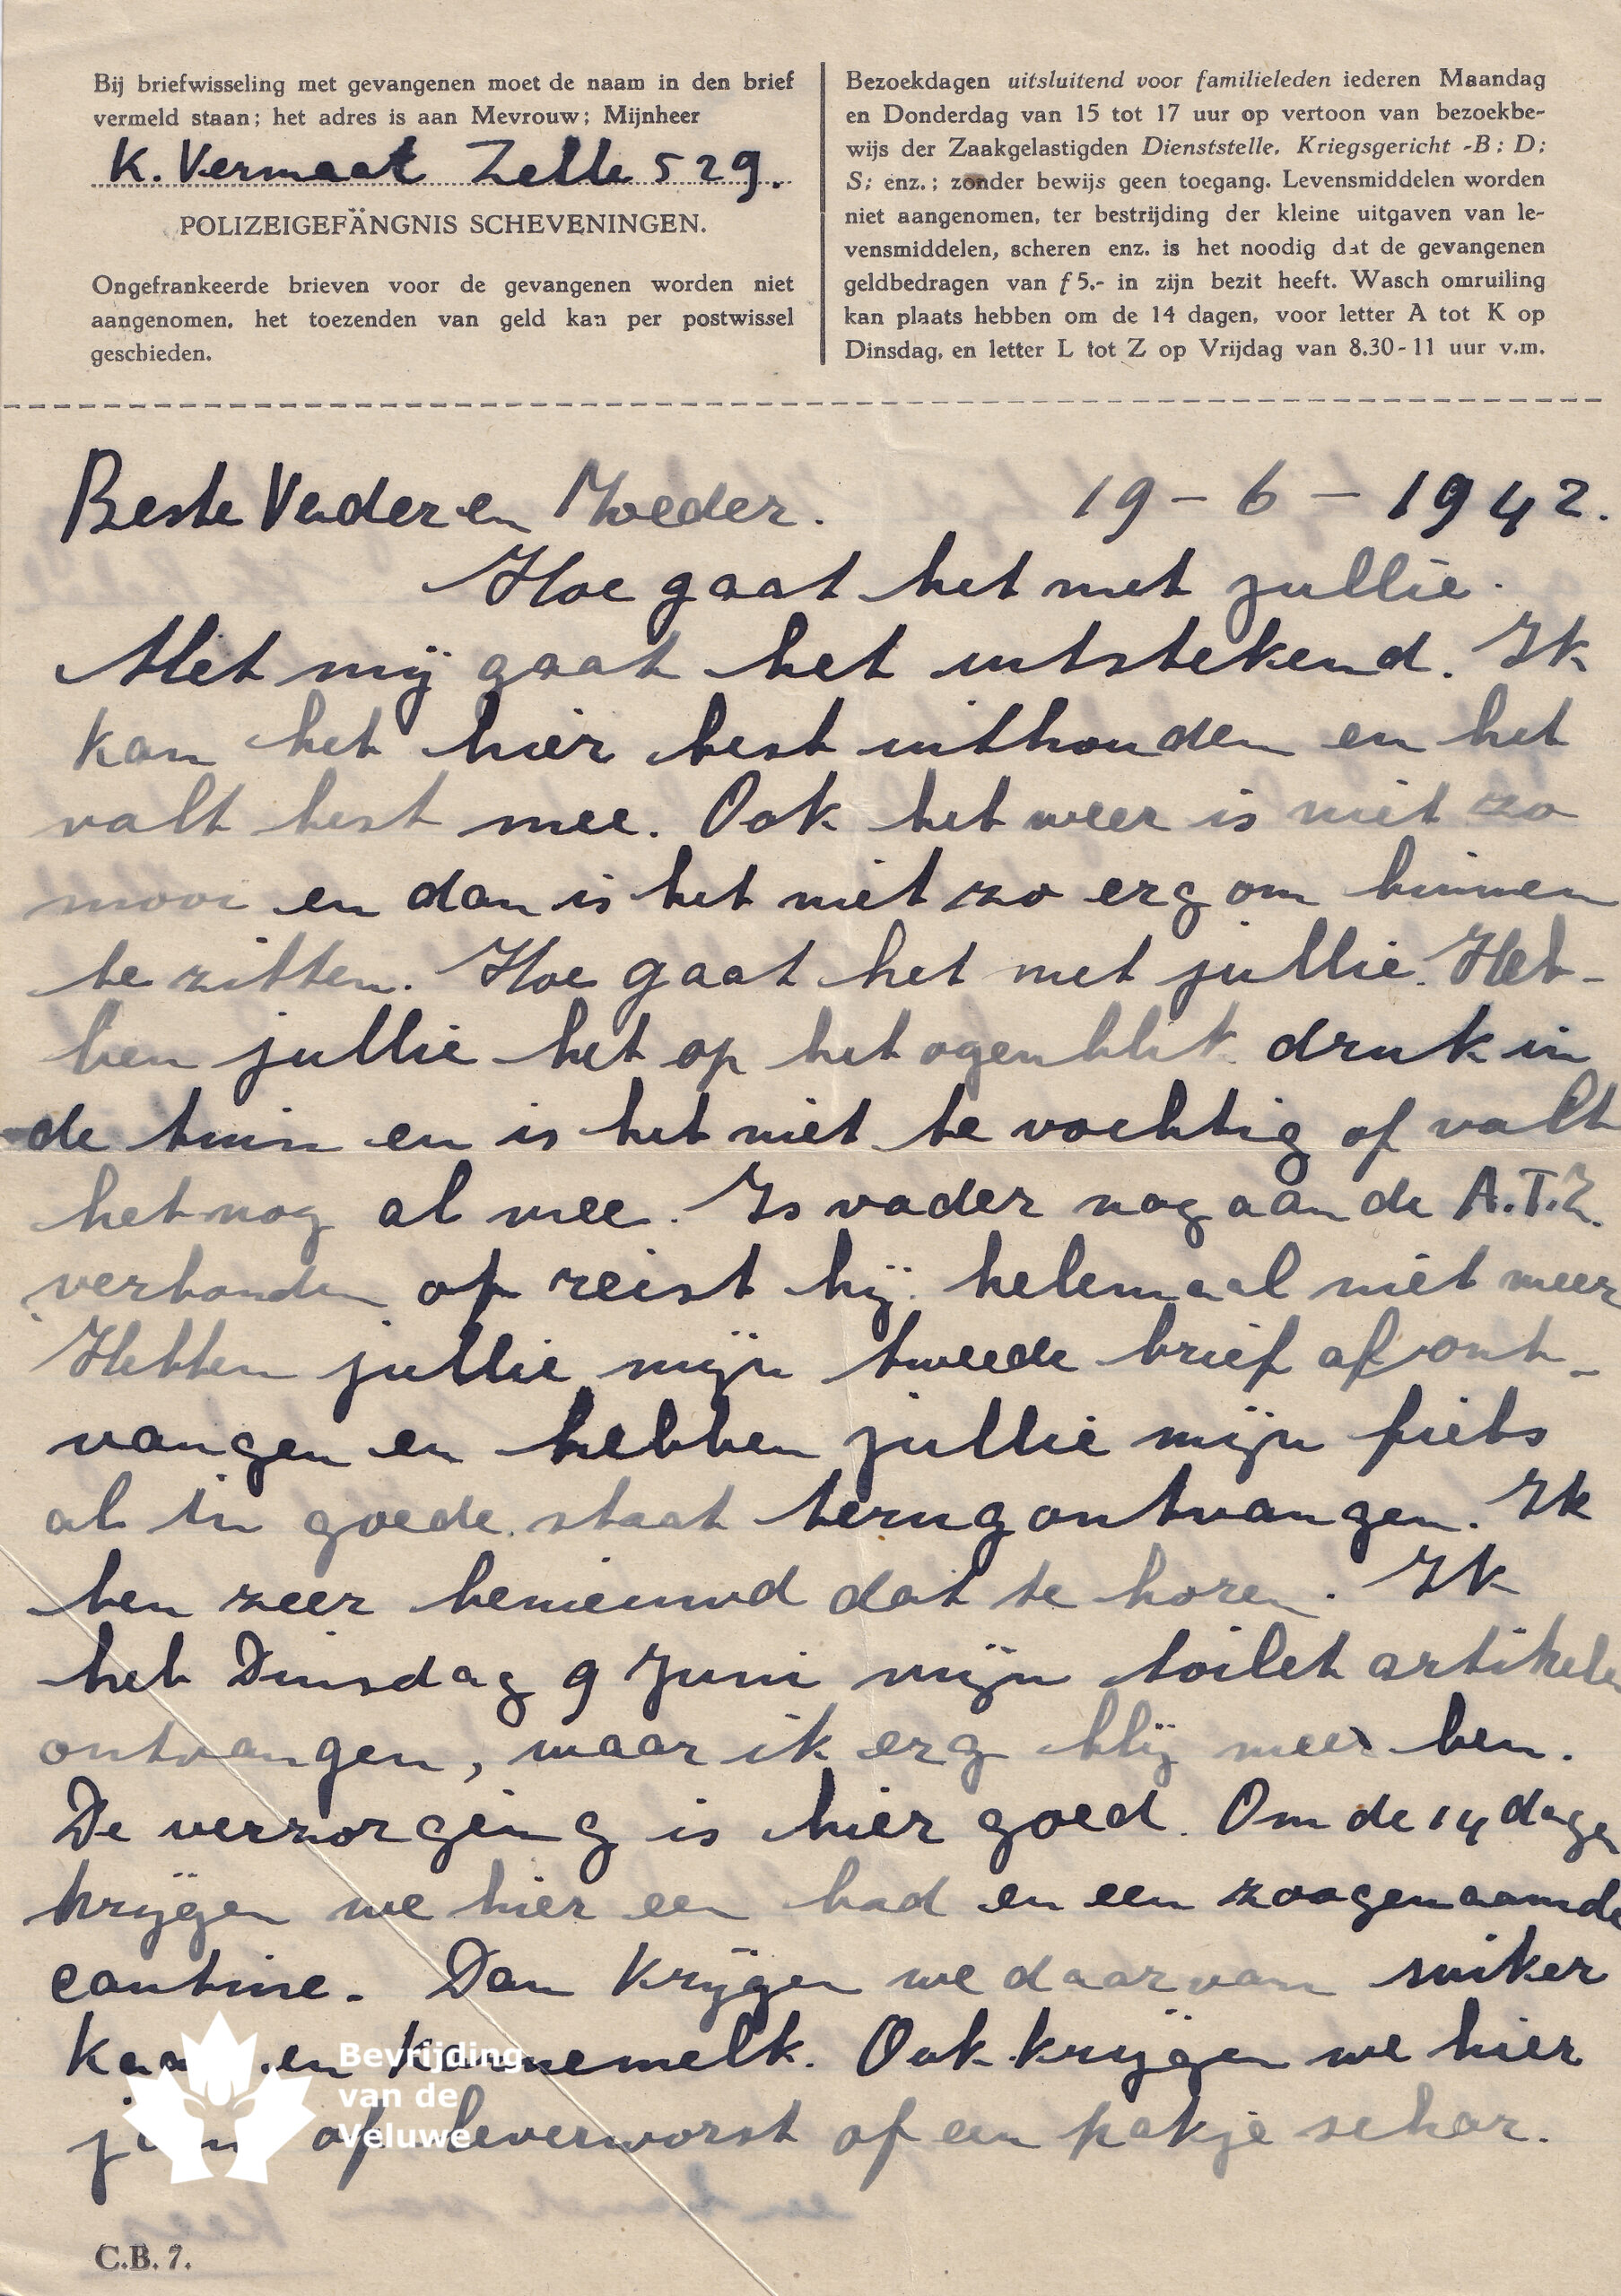 Bij briefwisseling met gevangenen moet de naam in den brief
vermeld staan; het adres is aan Mevrouw; Mijnheer
K. Vermaat Zelle 529.
POLIZEIGEFÄNGNIS SCHEVENINGEN.
Ongefrankeerde brieven voor de gevangenen worden niet
aangenomen, het toezenden van geld kan per postwissel
geschieden.
Bezoekdagen uitsluitend voor familieleden iederen Maandag
en Donderdag van 15 tot 17 uur op vertoon van bezoekbe-
wijs der Zaakgelastigden Dienststelle, Kriegsgericht -B; D;
S; enz.; zonder bewijs geen toegang. Levensmiddelen worden
niet aangenomen, ter bestrijding der kleine uitgaven van le-
vensmiddelen, scheren enz. is het noodig dat de gevangenen
geldbedragen van f 5,- in zijn bezit heeft. Wasch omruiling
kan plaats hebben om de 14 dagen, voor letter A tot K op
Dinsdag, en letter L tot Z op Vrijdag van 8.30-11 uur v.m.
Beste Vader en Moeder. 19-6-1942.
Hoe gaat het met jullie.
Met mij gaat het uitstekend. Ik
kan het hier best uithouden en het
valt best mee. Ook het weer is niet zo
mooi en dan is het niet zo erg om binnen
te zitten. Hoe gaat het met jullie. Heb-
ben jullie het op het ogenblik druk in
de tuin en is het niet te vochtig of valt
het nog al mee. Is vader nog aan de A.T.Z.
verbonden of reist hij helemaal niet meer
Hebben jullie mijn tweede brief al ont-
vangen en hebben jullie mijn fiets
al in goede staat terug ontvangen. Ik
ben zeer benieuwd dat te horen. Ik
heb Dinsdag 9 Juni mijn toilet artikelen
ontvangen, waar ik erg blij mee ben.
De verzorging is hier goed. Om de 14 dagen
krijgen we hier een bad en een zoogenaamde
cantine. Dan krijgen we daarvan suiker
kaas en Karnemelk. Ook krijgen we hier
jam of leverworst of een pakje
C.B. 7.
Bevrijding
van de
Veluwe